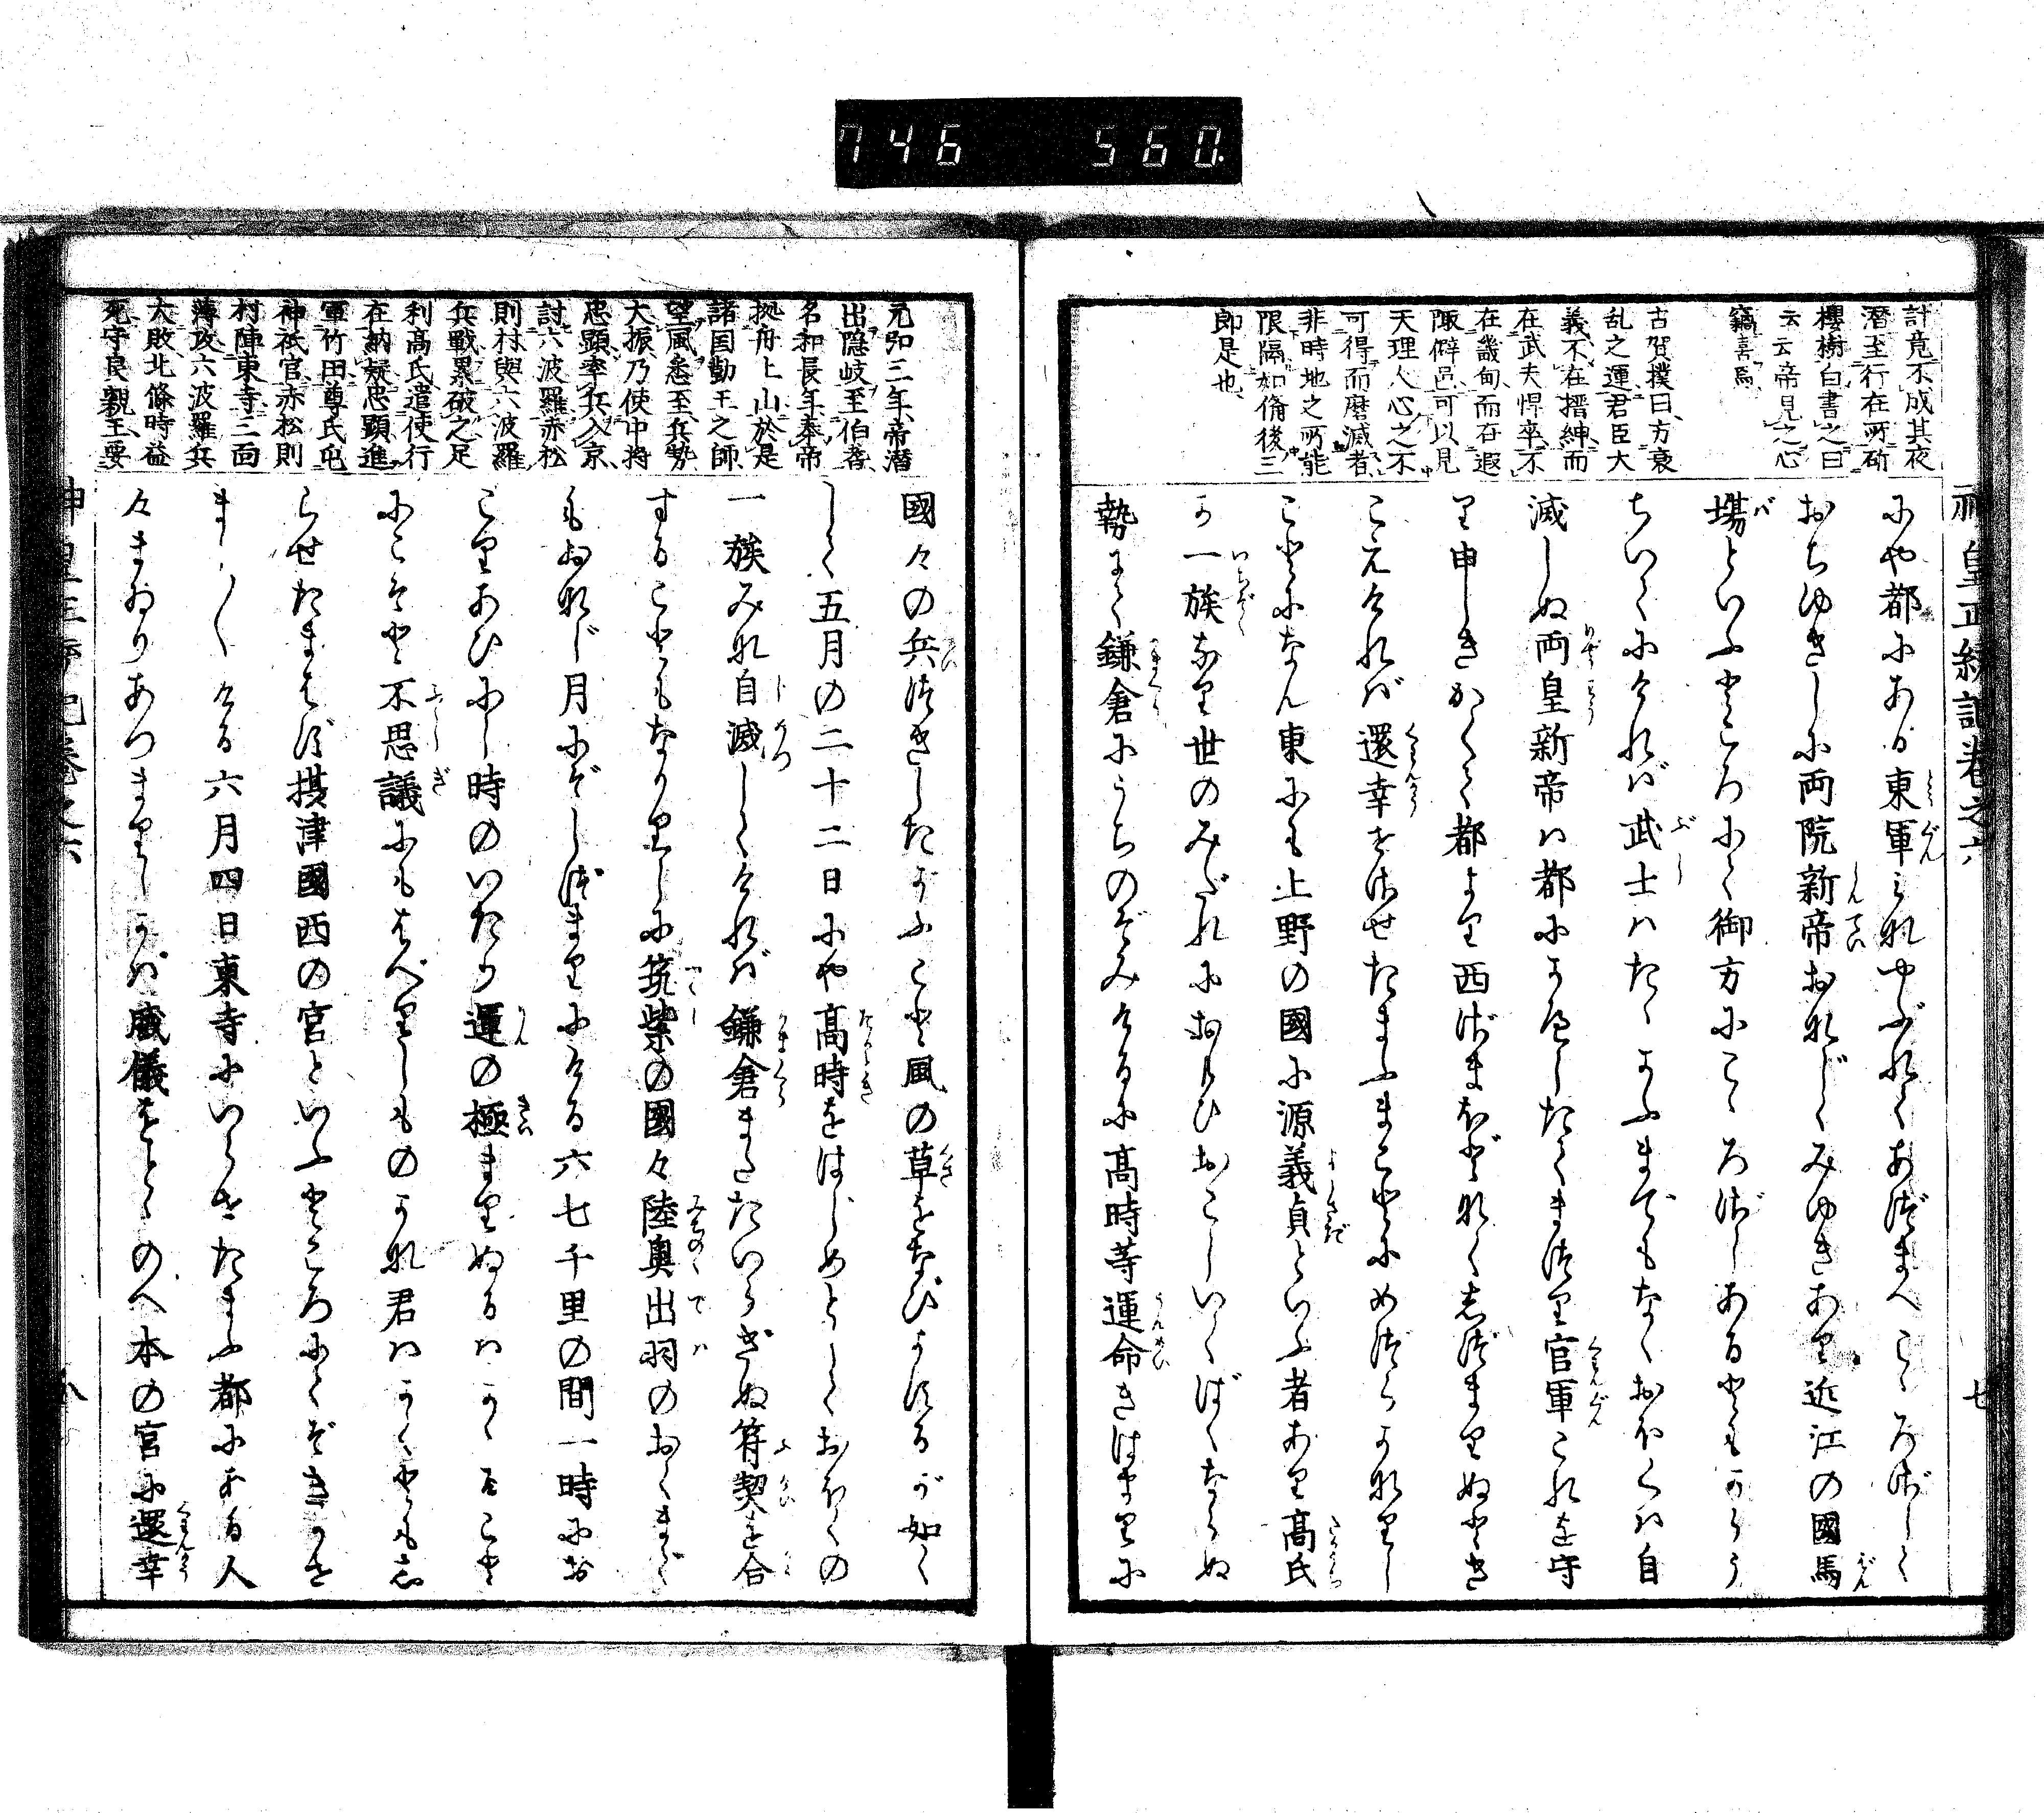 746 560.
神皇正統記巻之六 七
計竟不成其夜
潜至行在所斫
櫻樹白書之曰
云云帝見之心
竊喜焉
古賀撲曰方衰
乱之運君臣大
義不在搢紳而
在武夫悍卒不
在畿甸而在遐
陬僻邑可以見
天理人心之不
可得而磨滅者
非時地之所能
限隔如備後三
郎是也
にや都にある東軍みなやぶれてあづまへこゝろざして
おちゆきしに両院新帝おなじくみゆきあり近江の國馬
場といふところにて御方にこゝろざしあるともからう
ちいてにければ武士はたゝかふまでもなくおほくは自
滅しぬ両皇新帝は都にかへしたてまつり官軍これを守
り申しきかくて都より西ざまほどなくしづまりぬとき
こえければ還幸せさせたまふまことにめづらかなりし
ことになん東にも上野の國に源義貞といふ者あり高氏
か一族なり世のみだれにおもひおこしいくばくならぬ
勢にて鎌倉にうちのぞみけるに高時等運命きはまりに
元弘三年帝潜
出隠岐至伯耆
名和長年奉帝
拠舟上山於是
諸国勤王之師
望風悉至兵勢
大振乃使中将
忠顕率兵入京
討六波羅赤松
則村與六波羅
兵戦累破之足
利高氏遣使行
在納疑忠顕進
軍竹田尊氏屯
神祇官赤松則
村陣東寺三面
薄攻六波羅兵
大敗北條時益
死守良親王要
國々の兵つきしたがふこと風の草をなびかするが如く
して五月の二十二日にや高時をはじめとしておほくの
一族みな自滅してければ鎌倉またたいらぎぬ符契を合
することもなかりしに筑紫の國々陸奥出羽のおくまで
もおなじ月にぞしづまりにける六七千里の間一時にお
こりあひにし時のいたり運の極まりぬるはかゝることに
にこそと不思議にもはべりしもの
かな君はかくともしらせたまはず摂津國西の宮といふところにてぞきかせ
ましましける六月四日東寺にいらせたまふ都にある人
々まゐりあつまりしかば威儀をとゝのへ本の宮に還幸
神皇正統記巻之六 八